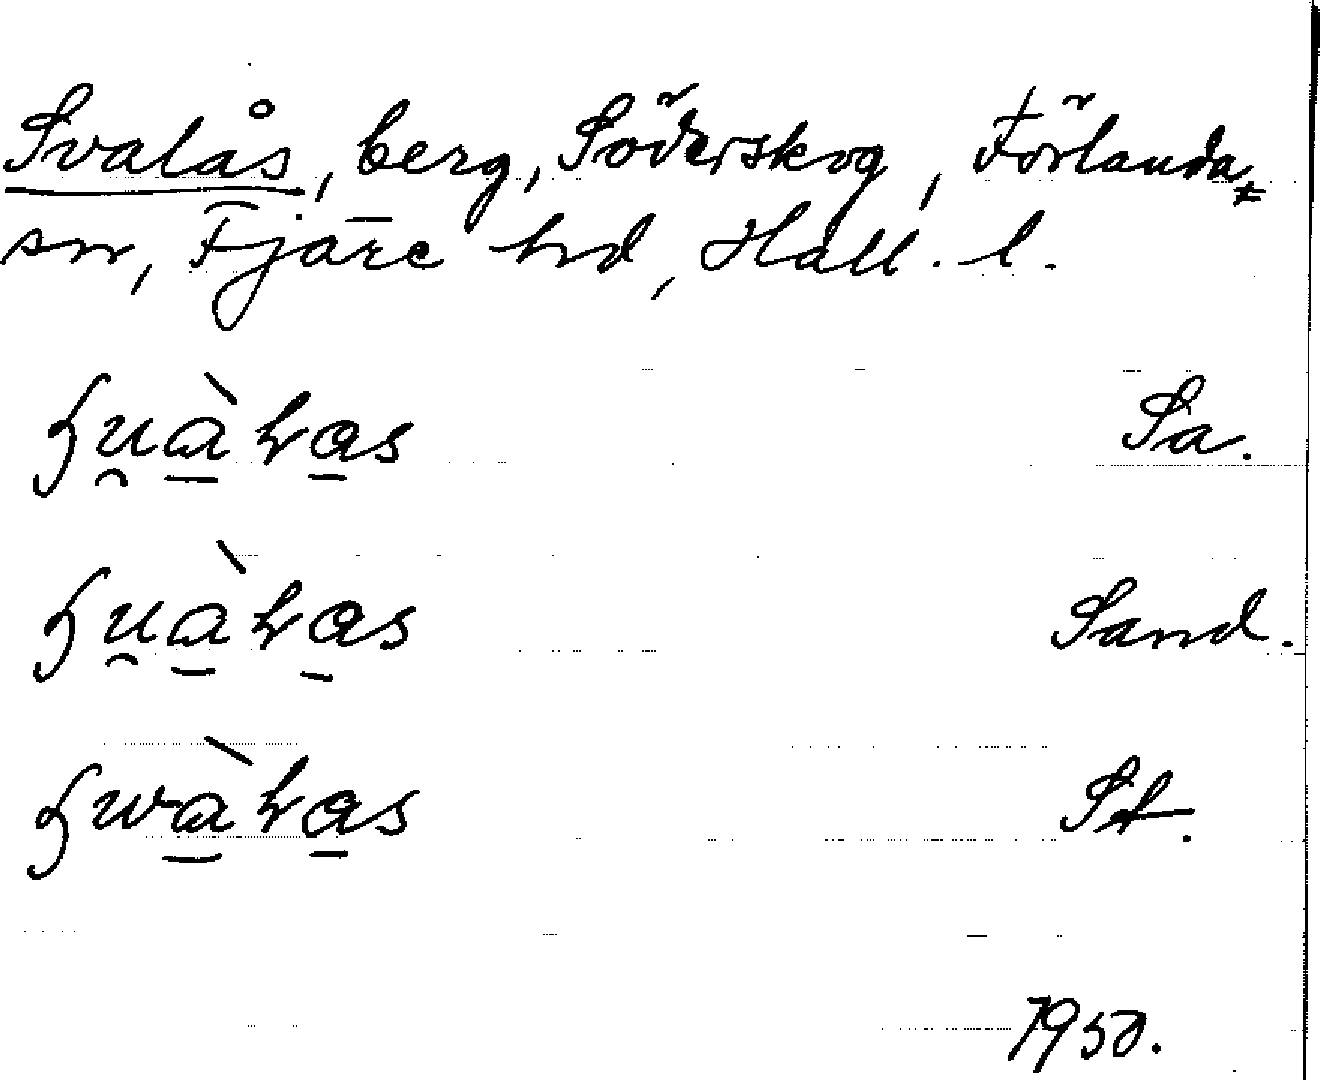 Svalås, berg, Söderskog, Förlanda
sn, Fjäre hd, Hall. l.
Sa.
Sand.
St.
1950.